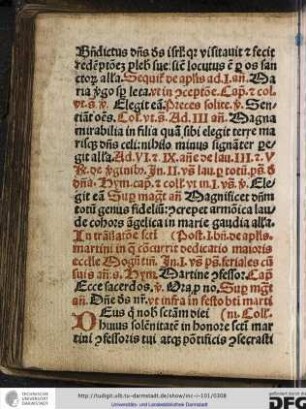 Bn̄dictus dn̄s ds̄ isrl: qr visitauit ⁊ fecit
redēptōeʒ pleb sue: sicut locutus ē ꝑ os san
ctoꝝ alla. Sequit̉ de aplis ad. I. an̄. Ma
ria v̉go sp̄ leta. vt in ꝯceptōe. Cap̉. ⁊ col.
vt. s̄. v̄. Elegit eā. Preces solite. v̄. Sen
tiāt oēs. Col. vt. s̄. Ad. III an̄. Magna
mirabilia in filia quā sibi elegit terre ma
risqʒ dn̄s celi: nihilo minus signāter ꝑe
git alla. Ad. VI. ⁊ IX. an̄e de lau. III. ⁊. V
de v̉ginibꝰ. In. II. vs̄ lau. ꝑ totū. ps̄
dn̄a. Hym. cap̄. ⁊ coll̉. vt. in. I. vs̄. v̄. Ele
git eā Sup mag̉t an̄ Magnificet dn̄m
totū genus fideliū: ⁊crepet armōica lau
de cohors āgelica in marie gaudia alla.
In trāslatōe scti Post. I. bn̄. de aplis.
martini in q̄ ꝯcurrit dedicatio maioris
eccl̄ie Mogun̄t. In. I. vs̄ ps̄. feriales cū
suis an̄. s. Hym. Martine ꝯfessor. Cap̄
Ecce sacerdos. v̄. Ora. ꝓ no. Sup mg̉t
an̄. On̄e ds̄ nr̄. vt infra in festo bti marti
Deus q̄ nob̄ sctām diei (m. Coll̉.
huius solēnitatē in honore scti mar
tini ꝯfessoris tui atqʒ pōtificis ꝯsecrasti
http://tudigit.ulb.tu-darmstadt.de/show/inc-i-101/0308
Universitäts- und Landesbibliothek Darmstadt